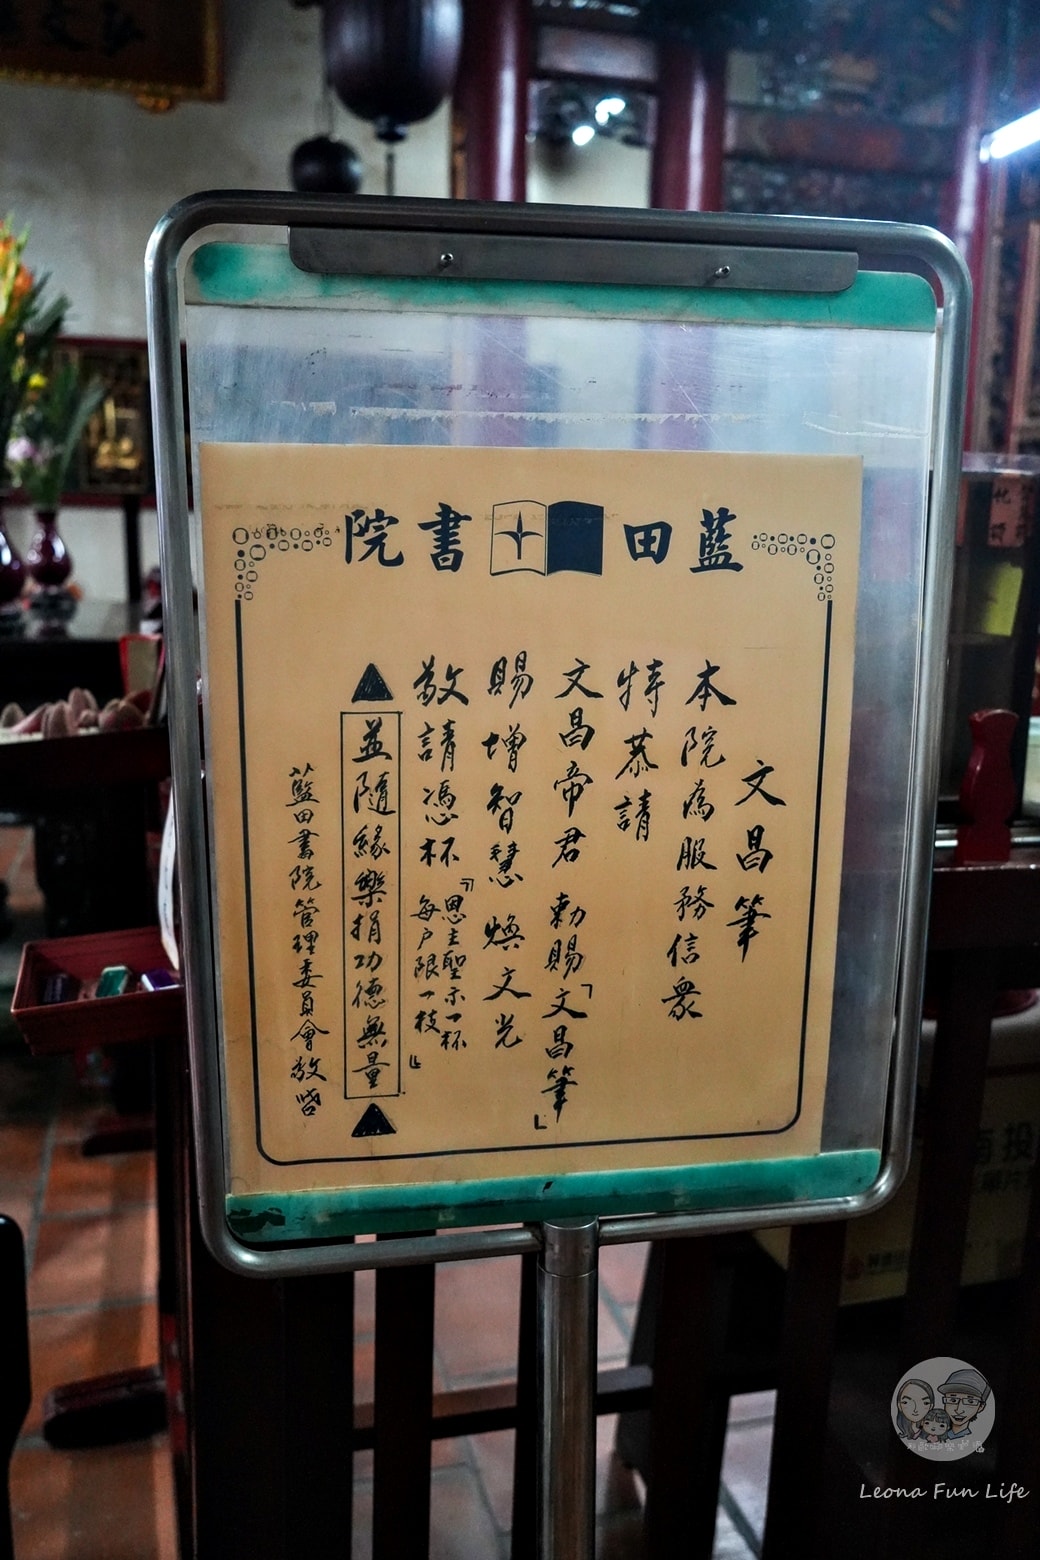 藍田書院
文昌筆
本院為服務信眾
特恭請
文昌帝君 勅賜「文昌筆」
賜增智慧煥文光
敬請憑杯「恩主聖示一杯
每戶限一枝」
▲並隨緣樂捐功德無量▲
藍田書院管理委員會敬啓
Leona Fun Life